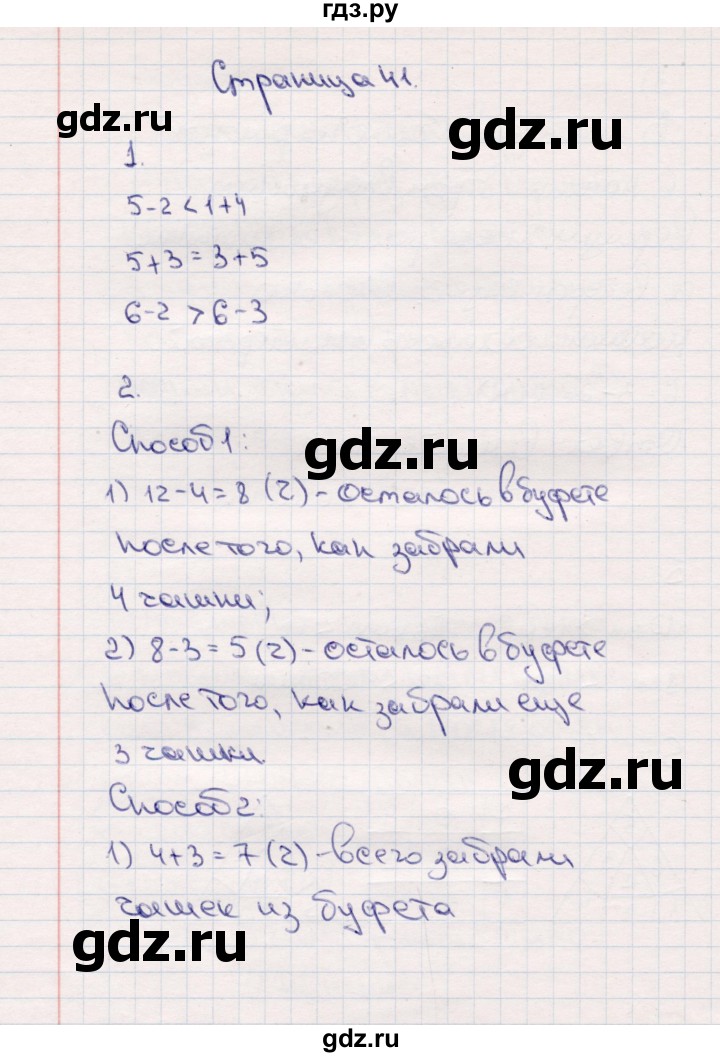 гдз.ру
Страница 41.
gdz.ru
gdz.ru
1.
5-2<1+4
5+3=3+5
6-2>6-3
2.
Способ 1:
gdz.ru
1) 12-4=8 (г) - осталось в буфете
после того, как забрали
4 чашки;
2) 8-3=5 (г) - осталось в буфете
после того, как забрали еще
3 чашки.
gdz.ru
Способ 2:
1) 4+3=7 (г) - всего забрали
чашек из буфета
gdz.ru
gdz.ru